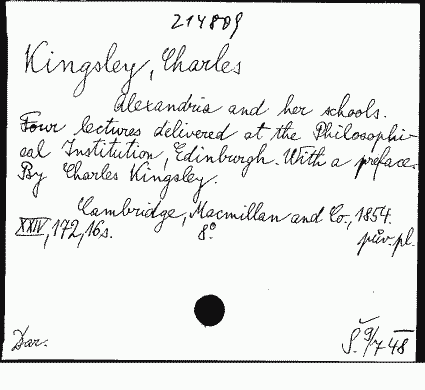 214809
Kingsley, Charles
Alexandria and her schools.
Four lectures delivered at the Philosophi-
cal Institution, Edinburgh. With a preface.
By Charles Kingsley.
Cambridge, Macmillan and Co., 1854.
XXIV, 172, 16 s. 8° pův. pl.
Dar. Š. 9/7 48